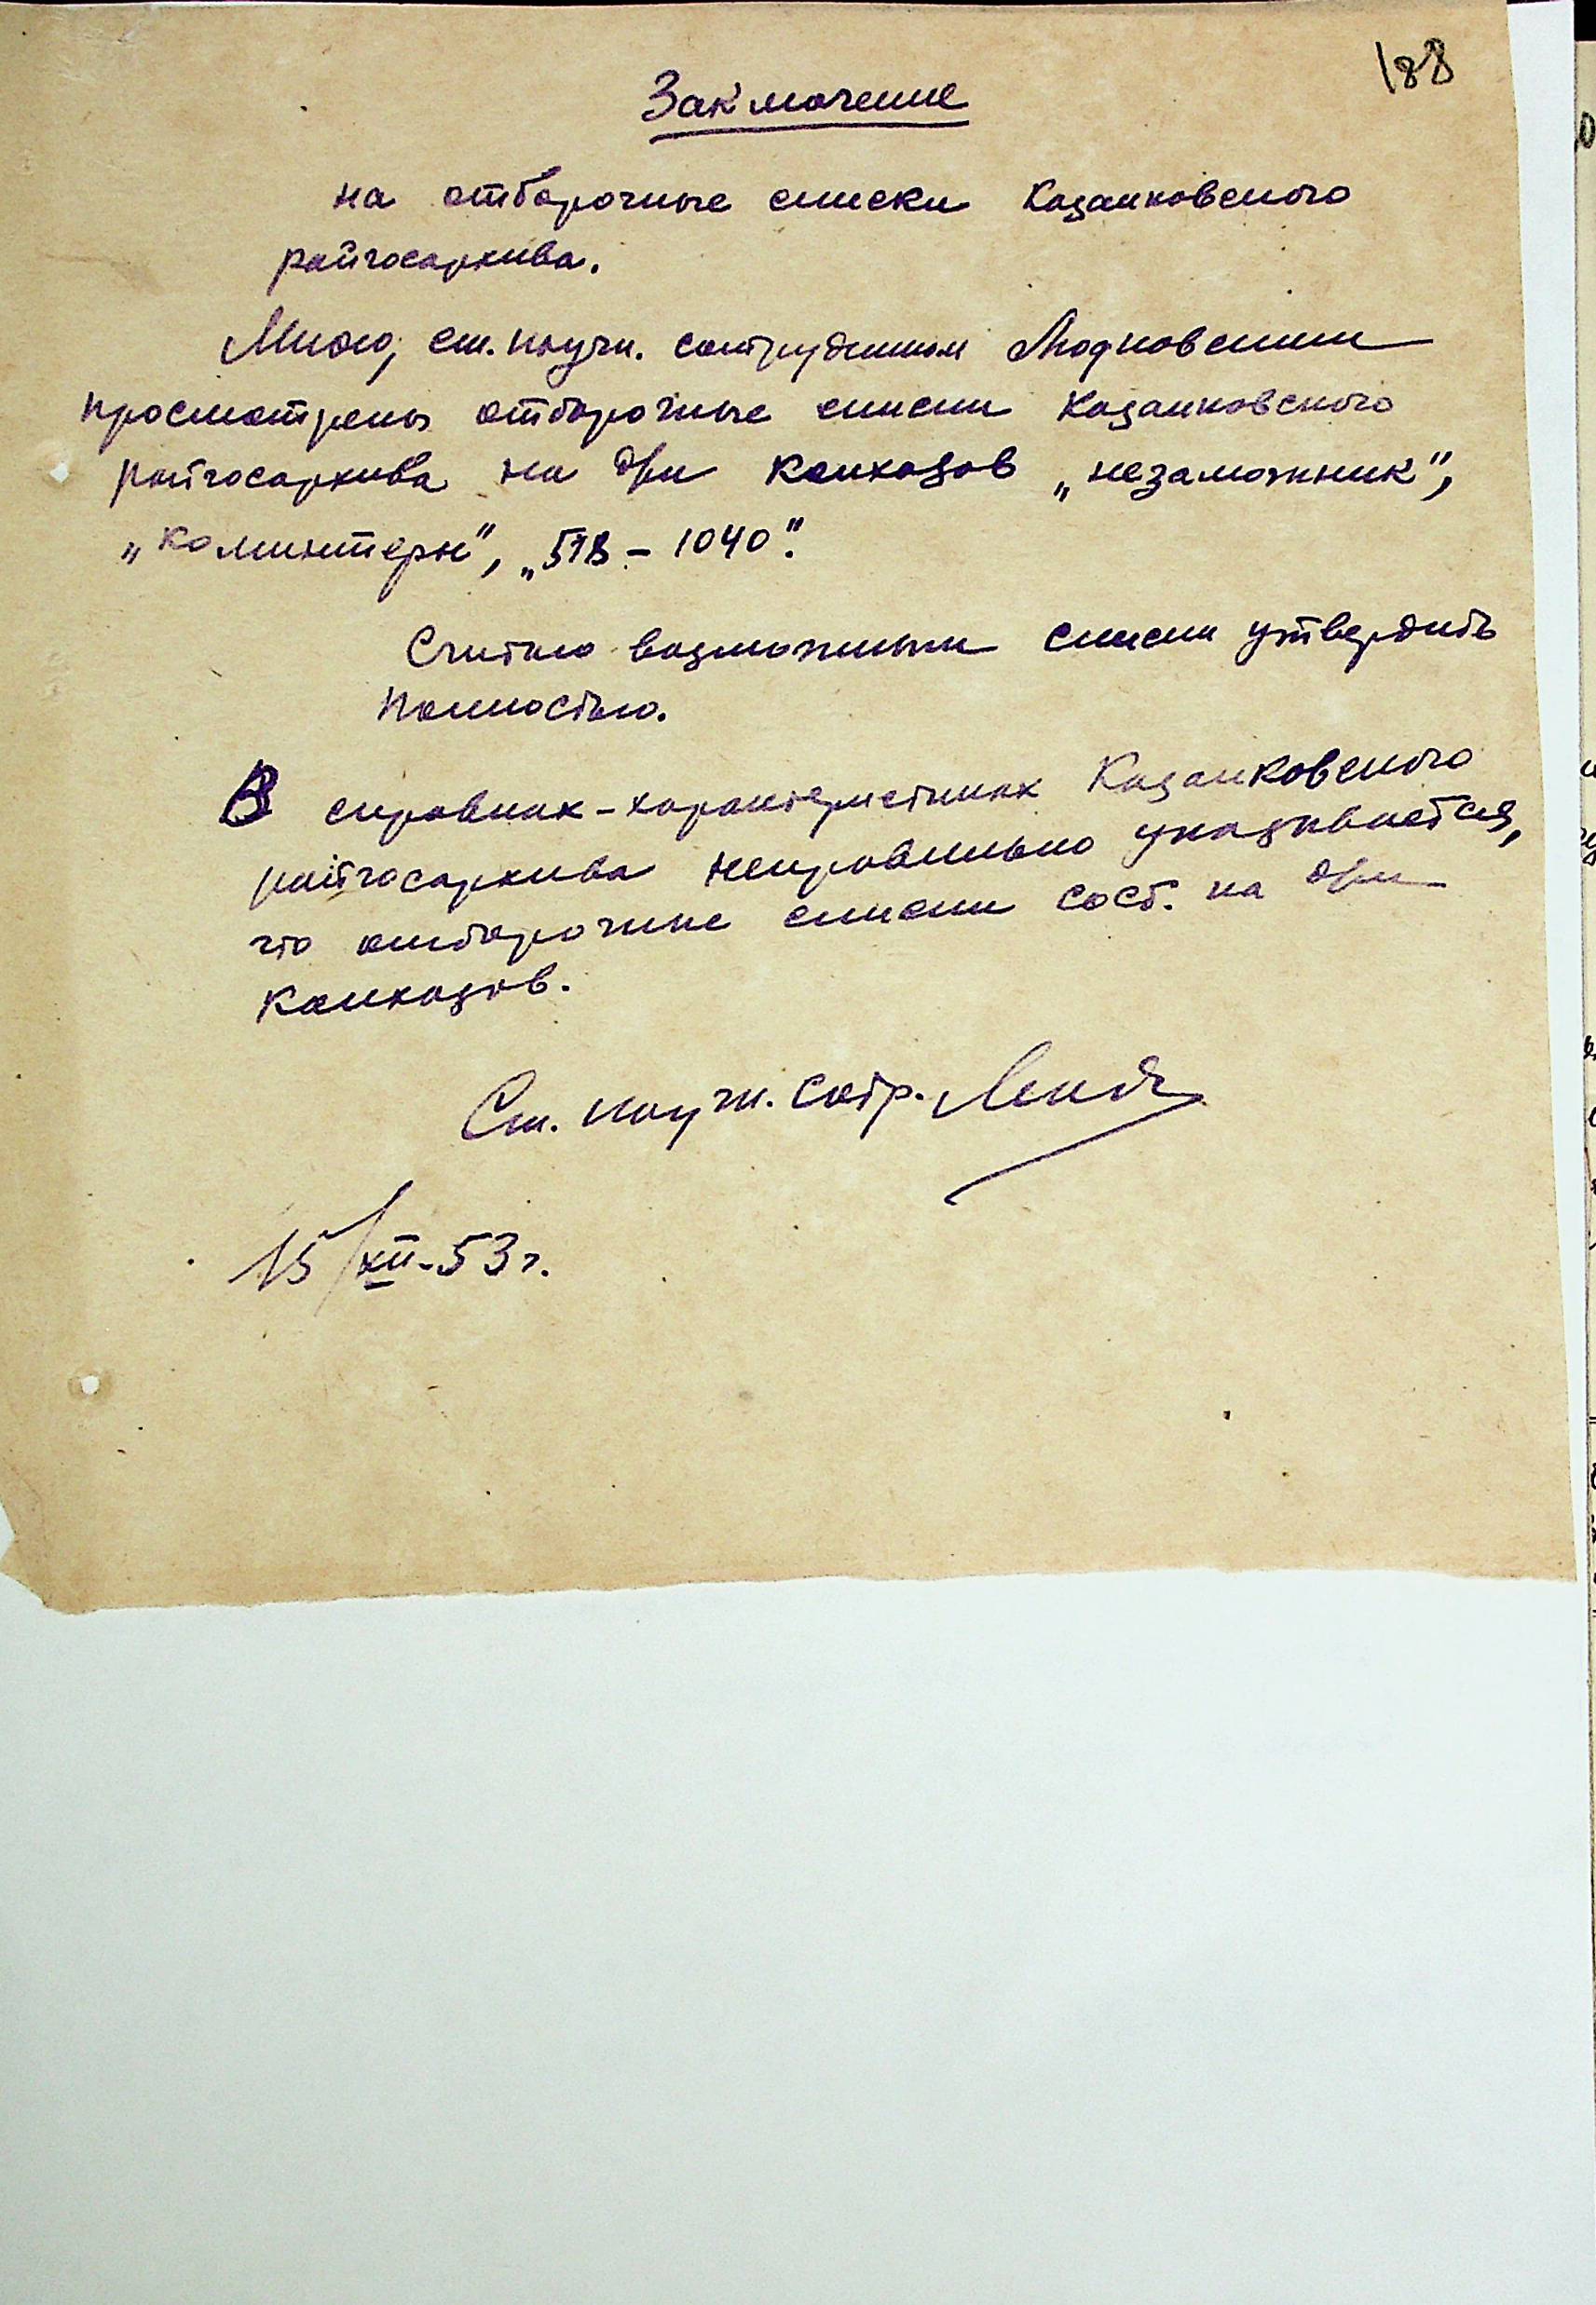 188
Заключение
на отборочные списки Казанковского
райгосархива.
Мною, ст. научн. сотрудником
просмотрены отборочные списки Казанковского
райгосархива на д/м колхозов „незаможник",
„Коминтерн", „518 – 1040".
Считаю возможным списки утвердить
полностью.
В справках-характеристиках Казанковского
райгосархива неправильно указывается,
что отборочные списки сост. на д/м
колхозов.
Ст. научн. сотр.
15/XII-53 г.